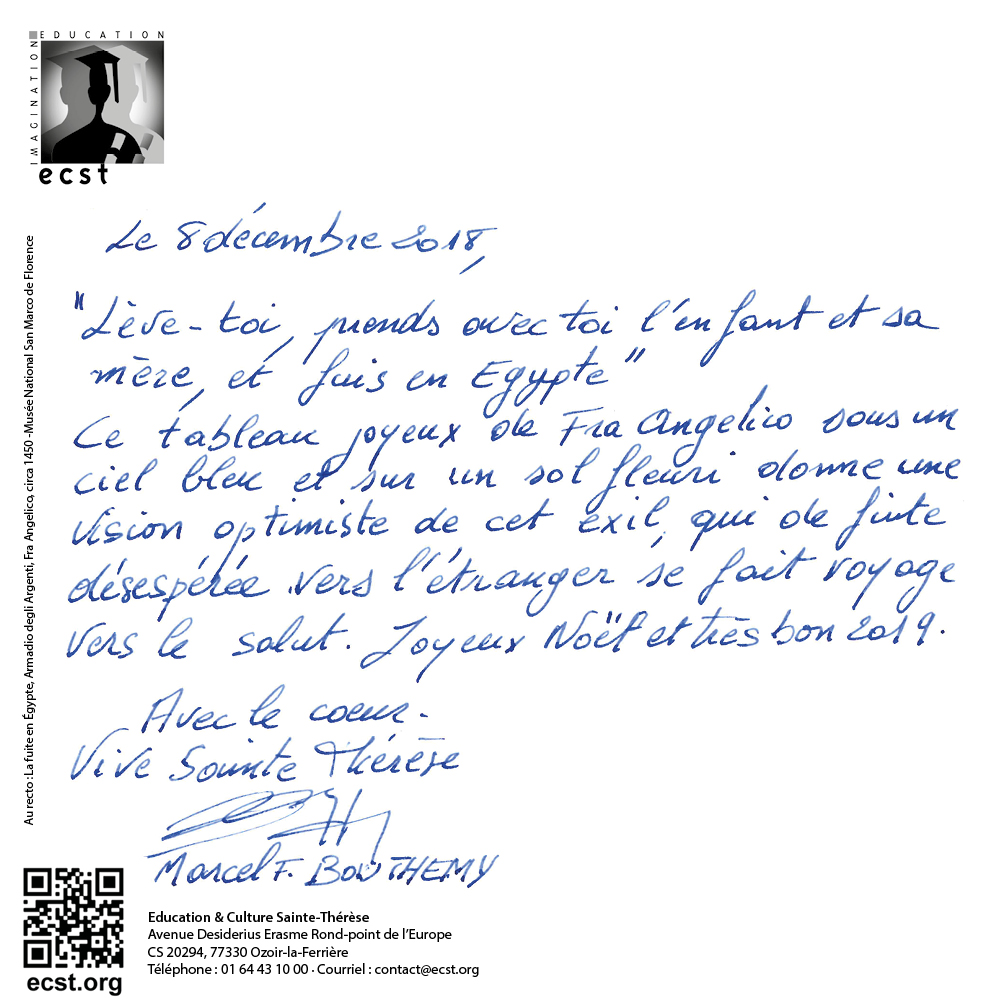 EDUCATION
IMAGINATION
ecst
Le 8 décembre 2018,
"Lève-toi, prends avec toi l'enfant et sa
mère, et fuis en Egypte"
Ce tableau joyeux de Fra Angelico sous un
ciel bleu et sur un sol fleuri donne une
vision optimiste de cet exil, qui de fuite
désespérée vers l'étranger se fait voyage
vers le salut. Joyeux Noël et très bon 2019.
Avec le coeur.
Vive Sainte Thérèse
Marcel F. BOUTHEMY
Au recto : La fuite en Égypte, Armadio degli Argenti, Fra Angelico, circa 1450 - Musée National San Marco de Florence
ecst.org
Education & Culture Sainte-Thérèse
Avenue Desiderius Erasme Rond-point de l'Europe
CS 20294, 77330 Ozoir-la-Ferrière
Téléphone : 01 64 43 10 00 · Courriel : contact@ecst.org